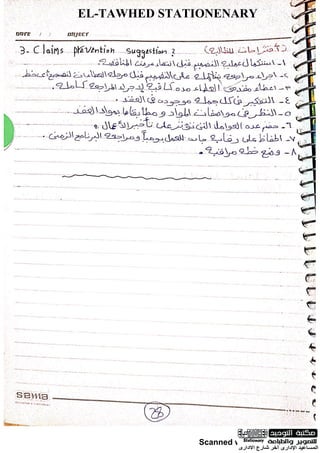 EL-TAWHED STATIONENARY
DATE / / OBJECT
3. Claims prevention suggestion : (اقتراحات للمطالبة)
١- استكمال عملية التصميم قبل انتهاء مرحلة المناقصة.
٢- اجراء مراجعة على التصميم قبل مرحلة العطاءات لتصحيح أى خطأ
٣- اعطاء مقدمى العطاء مده كافية لاجراء المراجعة كاملة.
٤- التفكير فى كل جملة موجوده فى العقد.
٥- النظر فى مواصفات المواد و مطابقتها بمواد العقد
٦- حصر عدد العوامل التى تؤثر على تأخير الأعمال.
٧- الحفاظ على رقابة جيدة للعمل يومياً و مراجعة البرنامج الزمنى.
٨- وضع خطة مراقبة.
SBMB
28
مكتبة التوحيد
للتصوير والطباعة
Scanned